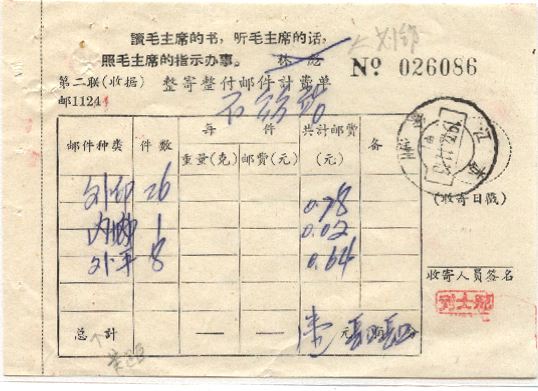 讀毛主席的书，听毛主席的话，
照毛主席的指示办事。 林
№ 026086
第二联(收据) 整寄整付邮件計费单
邮1124
邮件种类 件数 每件 共計邮費 备
重量(克) 邮费(元) (元)
外印 26 0.78
内 1 0.02
外平 8 0.64
总計 — — 元
(收寄日戳)
收寄人员签名